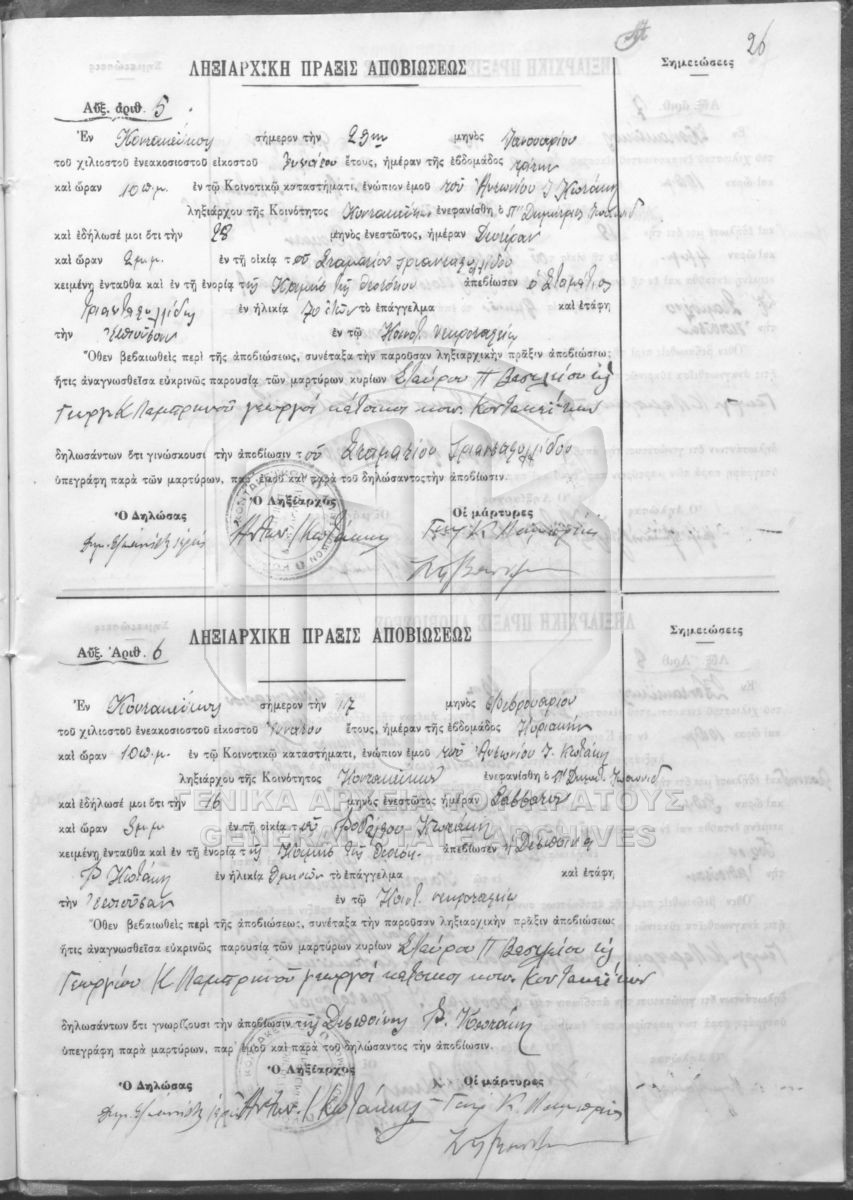 26
ΛΗΞΙΑΡΧΙΚΗ ΠΡΑΞΙΣ ΑΠΟΒΙΩΣΕΩΣ
Σημειώσεις
Αὔξ. ἀριθ. 5
Ἐν Κοντακέϊκοις σήμερον τὴν 29ην μηνὸς Ἰανουαρίου
τοῦ χιλιοστοῦ ἐνεακοσιοστοῦ εἰκοστοῦ ἐννάτου ἔτους, ἡμέραν τῆς ἑβδομάδος τρίτην
καὶ ὥραν 10 π.μ. ἐν τῷ Κοινοτικῷ καταστήματι, ἐνώπιον ἐμοῦ τοῦ Ἀντωνίου Ι Κωτάκη
ληξιάρχου τῆς Κοινότητος Κοντακέϊκων ἐνεφανίσθη ὁ Π Δημήτριος
καὶ ἐδήλωσέ μοι ὅτι τὴν 28 μηνὸς ἐνεστῶτος, ἡμέραν Δευτέραν
καὶ ὥραν 2 μ.μ. ἐν τῇ οἰκίᾳ τοῦ Σταματίου Τριανταφυλλίδου
κειμένῃ ἐνταῦθα καὶ ἐν τῇ ἐνορίᾳ τῆς Κοιμήσ τῆς Θεοτόκου ἀπεβίωσεν ὁ Σταμάτιος
Τριανταφυλλίδης ἐν ἡλικίᾳ 70 ἐτῶν τὸ ἐπάγγελμα καὶ ἐτάφη
τὴν ἰδίαν ἐν τῷ Κοινοτ. νεκροταφείῳ
Ὅθεν βεβαιωθεὶς περὶ τῆς ἀποβιώσεως, συνέταξα τὴν παροῦσαν ληξιαρχικὴν πρᾶξιν ἀποβιώσεως
ἥτις ἀναγνωσθεῖσα εὐκρινῶς παρουσίᾳ τῶν μαρτύρων κυρίων Σταύρου Π Βασιλείου
Γεωργ Κ Λαμπρινοῦ γεωργοὶ κάτοικοι κοιν. Κοντακεΐκων
δηλωσάντων ὅτι γινώσκουσι τὴν ἀποβίωσιν τοῦ Σταματίου Τριανταφυλλίδου
ὑπεγράφη παρὰ τῶν μαρτύρων, παρ' ἐμοῦ καὶ παρὰ τοῦ δηλώσαντος τὴν ἀποβίωσιν.
Ὁ Ληξίαρχος
Ὁ Δηλώσας Οἱ μάρτυρες
Αντων. Ι Κωτάκης Γεωρ Κ.
ΛΗΞΙΑΡΧΙΚΗ ΠΡΑΞΙΣ ΑΠΟΒΙΩΣΕΩΣ
Σημειώσεις
Αὔξ. Ἀριθ. 6
Ἐν Κοντακέϊκοις σήμερον τὴν 17 μηνὸς Φεβρουαρίου
τοῦ χιλιοστοῦ ἐνεακοσιοστοῦ εἰκοστοῦ ἐννάτου ἔτους, ἡμέραν τῆς ἑβδομάδος Κυριακὴν
καὶ ὥραν 10 π.μ. ἐν τῷ Κοινοτικῷ καταστήματι, ἐνώπιον ἐμοῦ τοῦ Ἀντωνίου Ι. Κωτάκη
ληξιάρχου τῆς Κοινότητος Κοντακέϊκων ἐνεφανίσθη ὁ Π Δημήτ
καὶ ἐδήλωσέ μοι ὅτι τὴν 16 μηνὸς ἐνεστῶτος ἡμέραν Σάββατον
ΓΕΝΙΚΑ ΑΡΧΕΙΑ ΤΟΥ ΚΡΑΤΟΥΣ
καὶ ὥραν 3 μ.μ. ἐν τῇ οἰκίᾳ τοῦ Κωτάκη
GENERAL STATE ARCHIVES
κειμένῃ ἐνταῦθα καὶ ἐν τῇ ἐνορίᾳ τῆς Κοιμήσ τῆς Θεοτόκ. ἀπεβίωσεν ἡ Δέσποινα
Κωτάκη ἐν ἡλικίᾳ τὸ ἐπάγγελμα καὶ ἐτάφη
τὴν ἰδίαν ἐν τῷ Κοινοτ. νεκροταφείῳ
Ὅθεν βεβαιωθεὶς περὶ τῆς ἀποβιώσεως, συνέταξα τὴν παροῦσαν ληξιαρχικὴν πρᾶξιν ἀποβιώσεως
ἥτις ἀναγνωσθεῖσα εὐκρινῶς παρουσίᾳ τῶν μαρτύρων κυρίων Σταύρου Π Βασιλείου
Γεωργίου Κ Λαμπρινοῦ γεωργοὶ κάτοικοι κοιν. Κοντακεΐκων
δηλωσάντων ὅτι γνωρίζουσι τὴν ἀποβίωσιν τῆς Δεσποίνης Κωτάκη
ὑπεγράφη παρὰ μαρτύρων, παρ' ἐμοῦ καὶ παρὰ τοῦ δηλώσαντος τὴν ἀποβίωσιν.
Ὁ Ληξίαρχος
Ὁ Δηλώσας Οἱ μάρτυρες
Αντων. Ι Κωτάκης Γεωρ Κ.